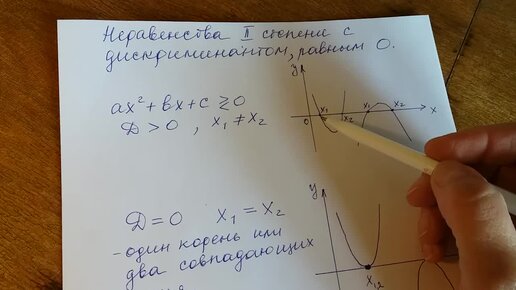 Неравенства II степени с
дискриминантом, равным 0.
y
ax² + bx + c ≷ 0
D > 0 , x₁ ≠ x₂
0 x₁ x₂ x₁ x₂ x
y
D = 0 x₁ = x₂
- один корень или
два совпадающих
x₁,₂